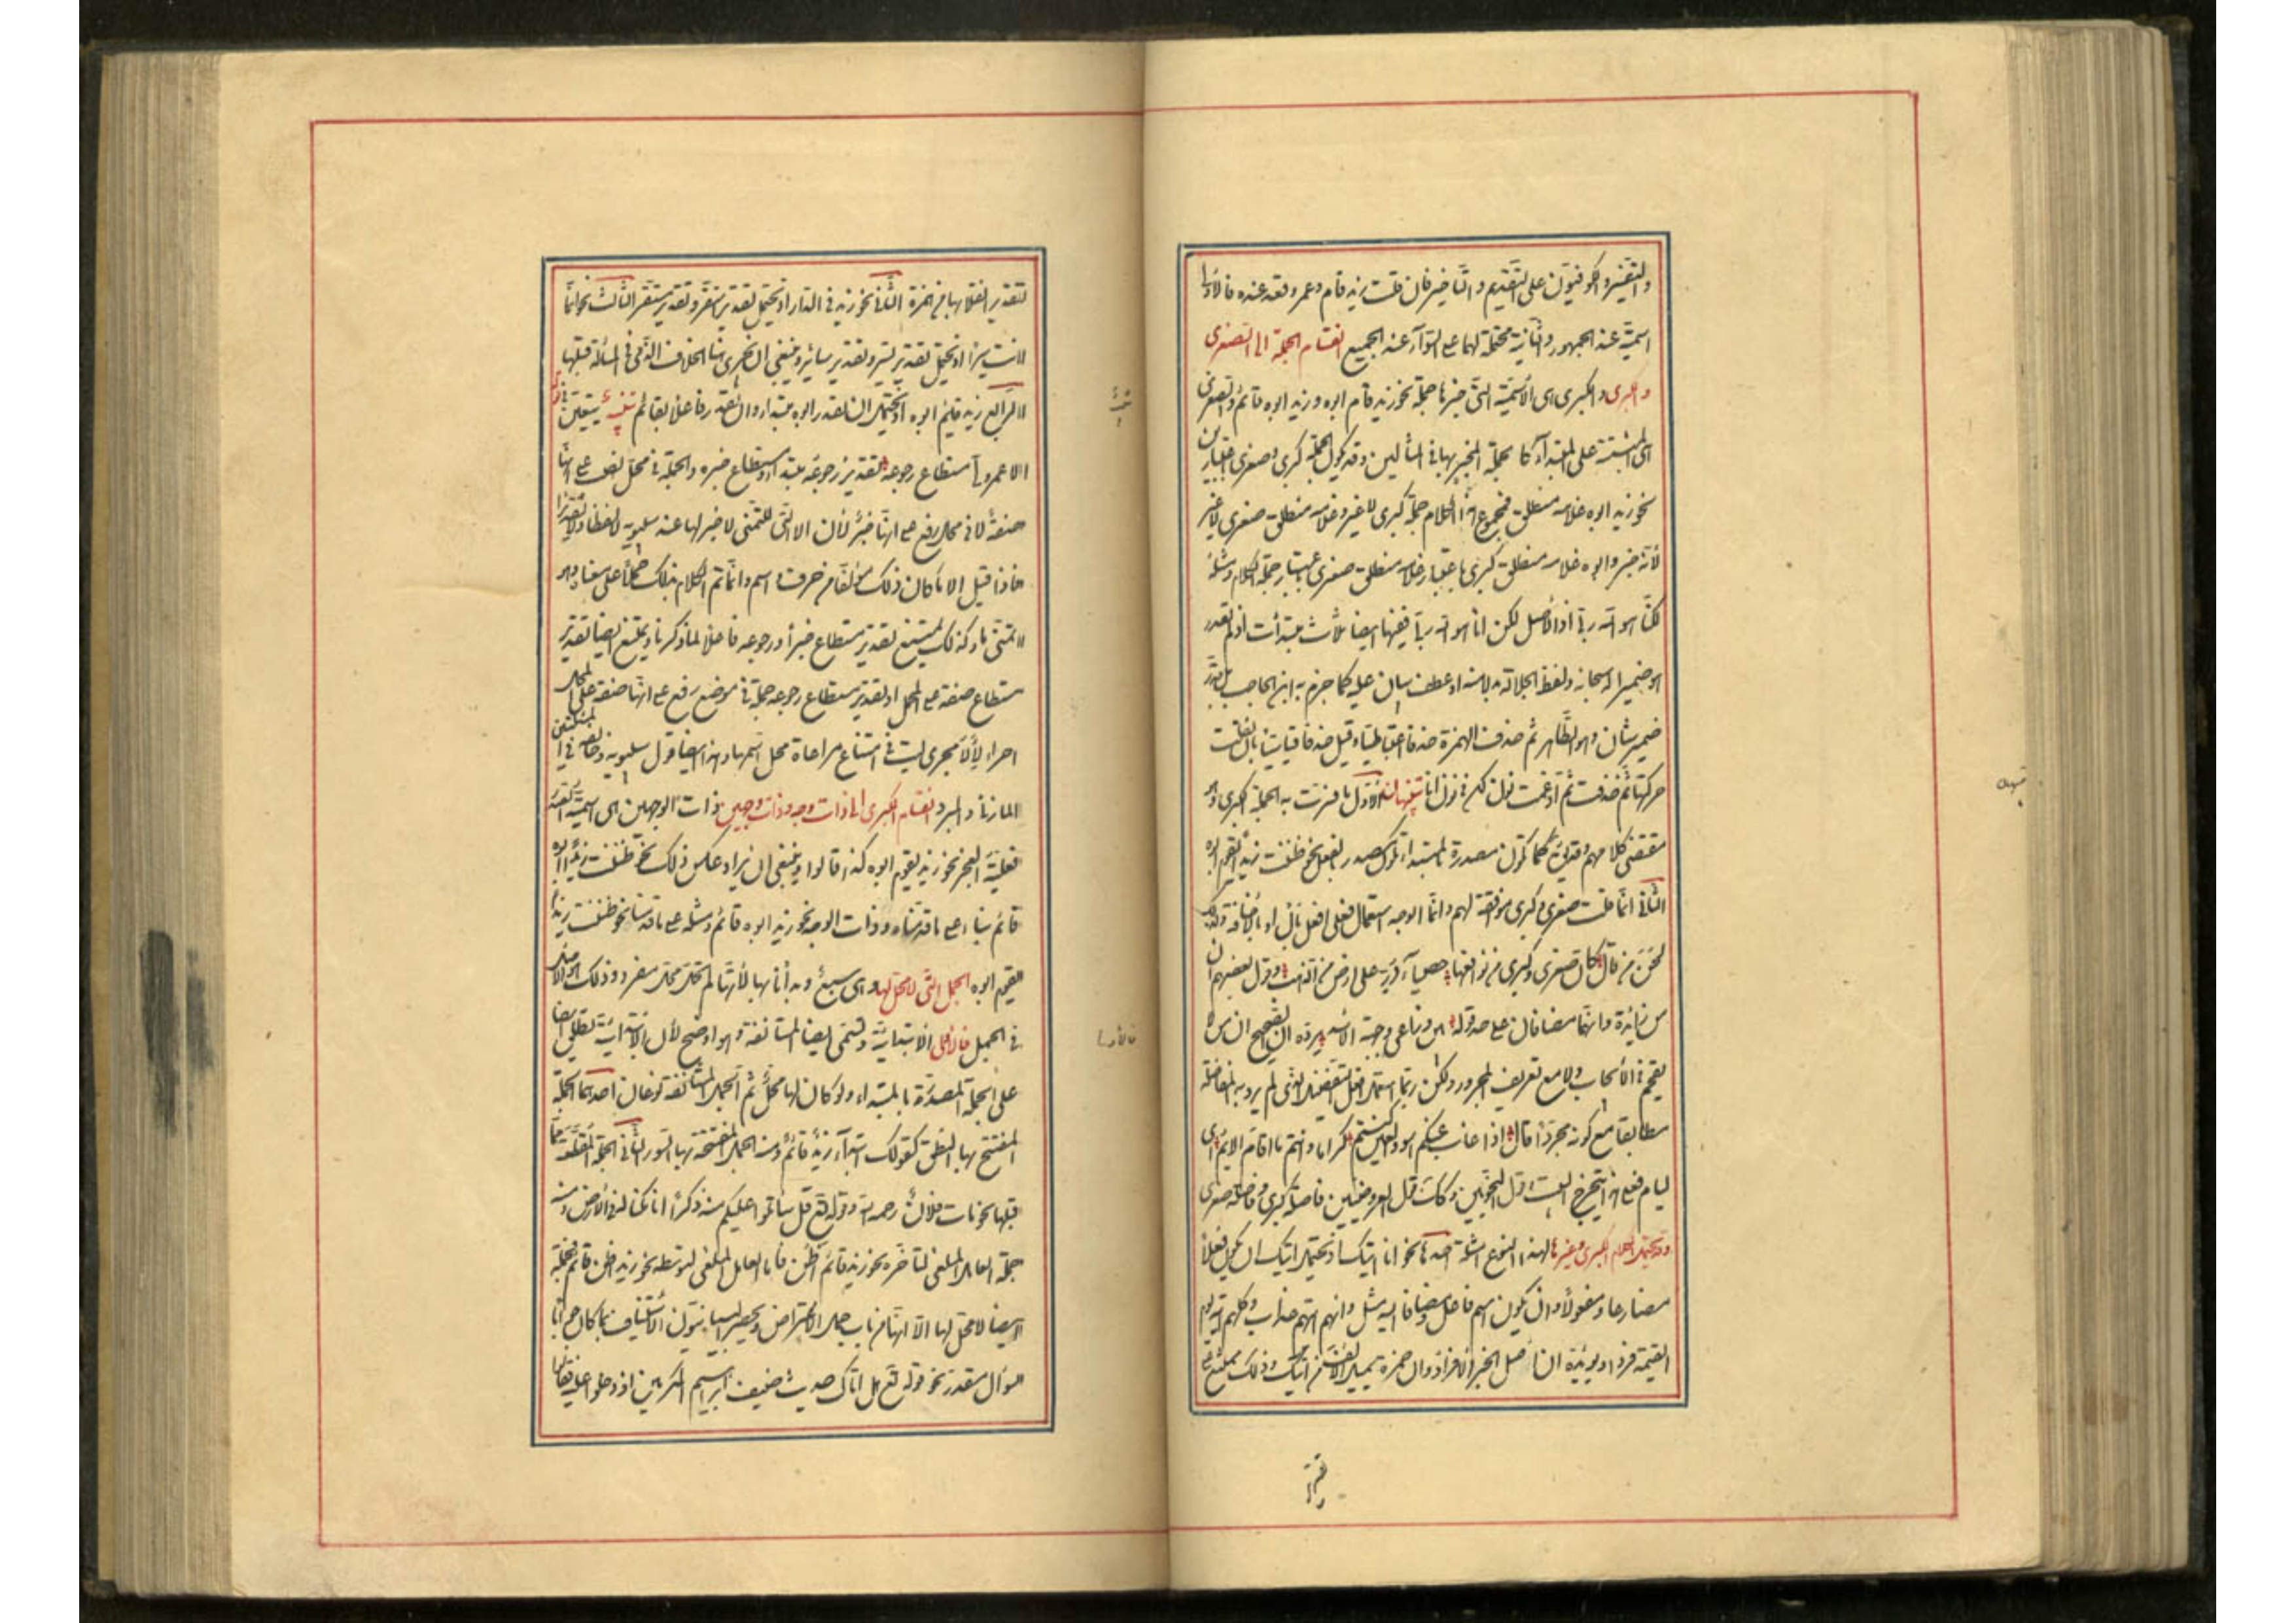 والتفسير والكوفيون على التقديم والتأخير فان قلت زيد قام وعمرو قعد عنده فالاولى
اسمية عند الجمهور والثانية محتملة لهما على السواء عند الجميع انقسام الجملة الى الصغرى
والكبرى والكبرى هى الأسمية التى خبرها جملة نحو زيد قام ابوه وزيد ابوه قائم والصغرى
هى المبنية على المبتدأ كالجملة المخبر بها فى المثالين وقد تكون الجملة كبرى وصغرى باعتبارين
نحو زيد ابوه غلامه منطلق فمجموع هذا الكلام جملة كبرى لا غير وغلامه منطلق صغرى لا غير
لأنه خبر وابوه غلامه منطلق كبرى باعتبار غلامه منطلق صغرى باعتبار جملة الكلام ومثله
لكنا هو الله ربى اذ الأصل لكن انا هو الله ربى ففيها ايضا ثلاث مبتدأت اذ لم يقدر
هو ضميرا له سبحانه ولفظ الجلالة بدلا منه او عطف بيان عليه كما جزم به ابن الحاجب بل قدر
ضمير شان وهو الظاهر ثم حذفت الهمزة حذفا اعتباطيا وقيل حذفا قياسيا بان نقلت
حركتها ثم حذفت ثم ادغمت نون لكن فى نون انا تنبيهان الاول ما فسرت به الجملة الكبرى هو
مقتضى كلامهم وقد يق كما تكون مصدرة بالمبتدأ تكون مصدرة بالفعل نحو ظننت زيدا يقوم ابوه
الثانى انما قلت صغرى وكبرى موافقة لهم وانما الوجه استعمال فعلى افعل بأل او بالاضافة ولذلك
لحن من قال كان صغرى وكبرى من فواقعها حصباء در على ارض من الذهب وقول بعضهم ان
من زائدة وانهما مضافان على حد قوله بين ذراعى وجبهة الأسد يرده ان الصحيح ان من لا
تقحم فى الأيجاب ولا مع تعريف المجرور ولكن ربما استعمل افعل التفضيل الذى لم يرد به المفاضلة
مطابقا مع كونه مجردا قال اذا غاب عنكم اسود العين كنتم كراما وانتم ما اقام الائم اى
ليام فعلى هذا يتخرج البيت وقول النحويين وكذلك قول العروضيين فاصلة كبرى وفاصلة صغرى
وقد يحتمل الكلام الكبرى وغيرها لهذا النوع امثلة احدها نحو انا اتيك اذ يحتمل اتيك ان يكون فعلا
مضارعا ومفعولا وان يكون اسم فاعل ومضافا اليه مثل وانهم اتيهم عذاب وكلهم اتيه يوم
القيمة فردا ويؤيده ان اصل الخبر الافراد وان حمزة يميل الالف من اتيك وذلك ممتنع على
تقدير انقلابها من همزة الثانى نحو زيد فى الدار اذ يحتمل تقدير استقر وتقدير مستقر الثالث نحو انما
انت سيرا اذ يحتمل تقدير تسير وتقدير سائر وينبغى ان يجرى هنا الخلاف الذى فى المسألة قبلها
الرابع زيد قائم ابوه اذ يحتمل ان يقدر ابوه مبتدأ وان يقدر فاعلا بقائم تنبيه يتعين فى قوله
الا عمر ولى مستطاع رجوعه تقدير رجوعه مبتدأ ومستطاع خبره والجملة فى محل نصب على انها
صفة لا فى محل رفع على انها خبر لأن الا التى للتمنى لا خبر لها عند سيبويه لا لفظا ولا تقديرا
فاذا قيل الا ماء كان ذلك مؤلفا من حرف واسم وانما تم الكلام بذلك حملا على معناه وهو
اتمنى ماء وكذلك يمتنع تقدير مستطاع خبرا ورجوعه فاعلا لما ذكرنا ويمتنع ايضا تقدير
مستطاع صفة على المحل او تقدير مستطاع رجوعه جملة فى موضع رفع على انها صفة على المحل
اجراء لألا مجرى ليت فى امتناع مراعاة محل اسمها وهذا ايضا قول سيبويه وخالفه فى المسئلتين
المازنى والمبرد انقسام الكبرى الى ذات وجه وذات وجهين ذات الوجهين هى اسمية الصدر
فعلية العجز نحو زيد يقوم ابوه كذا قالوا وينبغى ان يزاد عكس ذلك نحو ظننت زيدا ابوه
قائم بناء على ما قدمناه وذات الوجه نحو زيد ابوه قائم ومثله على ما قدمنا نحو ظننت زيدا
يقوم ابوه الجمل التى لا محل لها وهى سبع وبدأنا بها لأنها لم تحل محل مفرد وذلك هو الاصل
فى الجمل فالاولى الابتدائية وتسمى ايضا المستانفة وهو اوضح لأن الابتدائية تطلق ايضا
على الجملة المصدرة بالمبتدأ ولو كان لها محل ثم الجمل المستانفة نوعان احدهما الجملة
المفتتح بها النطق كقولك ابتداء زيد قائم ومنه الجمل المفتتحة بها السور الثانى الجملة المنقطعة عما
قبلها نحو مات فلان رحمه الله وقوله تع قل سأتلو عليكم منه ذكرا انا مكنا له فى الارض ومنه
جملة العامل الملغى لتأخره نحو زيد قائم اظن فاما العامل الملغى لتوسطه نحو زيد اظن قائم فجملته
ايضا لا محل لها الا انها من باب جمل الاعتراض ويخص البيانيون الاستيناف بما كان جوابا
لسؤال مقدر نحو قوله تع هل اتاك حديث ضيف ابرهيم المكرمين اذ دخلوا عليه فقالوا
تقدير